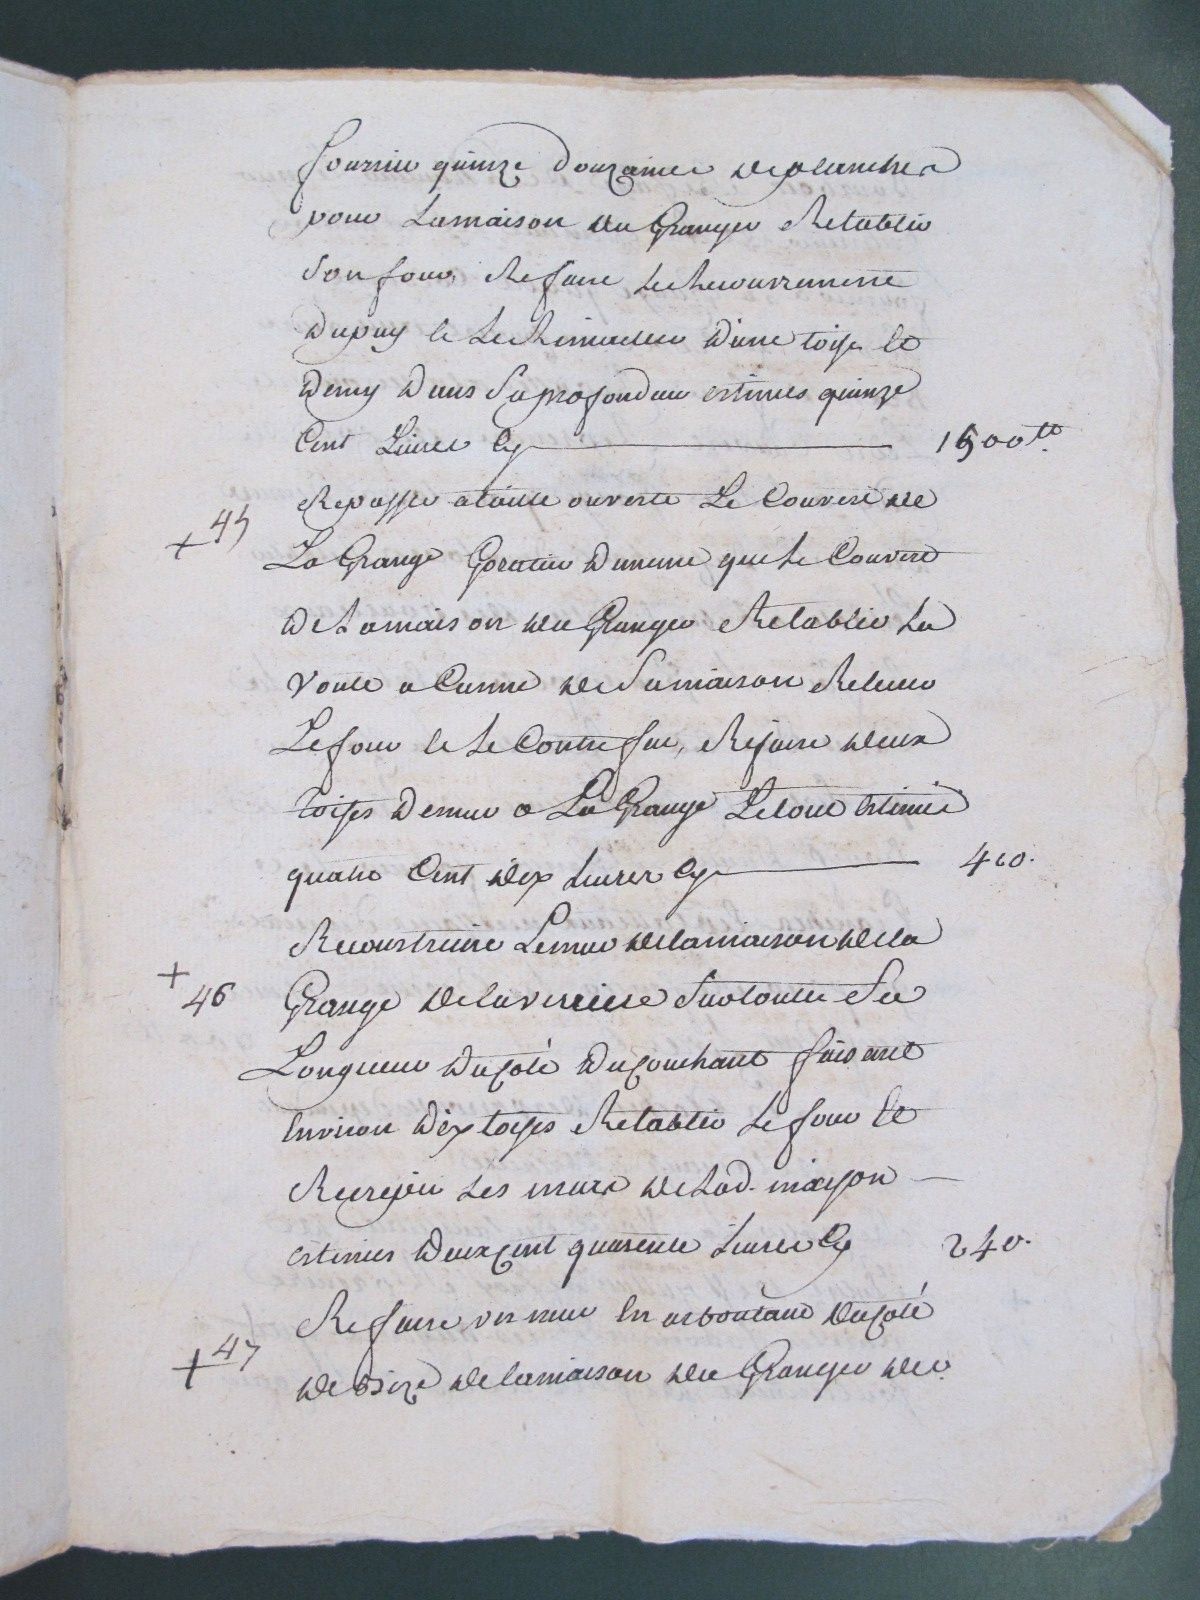 fournir quinze douzaines de planches
pour la maison du Granger Retablir
son four, Refaire le Recouvrement
du puy et le Rimader d'une toise et
demy dans sa profondeur estimés quinze
Cent Livres Cy 1500 tt.
+ 45 Repasser a taille ouverte Le Couvert de
La Grange de meme que le Couvert
de la maison du Granger Retablir la
voute a Canne de sa maison Relever
Le four et le Contre feu, Refaire deux
toises de mur a La Grange Le tout estimé
quatre Cent dix Livres Cy 410.
Reconstruire Le mur de la maison de la
+ 46 Grange de la verriere sur toute sa
Longueur du coté du couchant faisant
Environ dix toises Retablir le four et
les murs de lad. maison
estimés deux cent quarente Livres Cy 240.
+ 47 Refaire un mur en arboutant du coté
de bize de la maison du Granger de